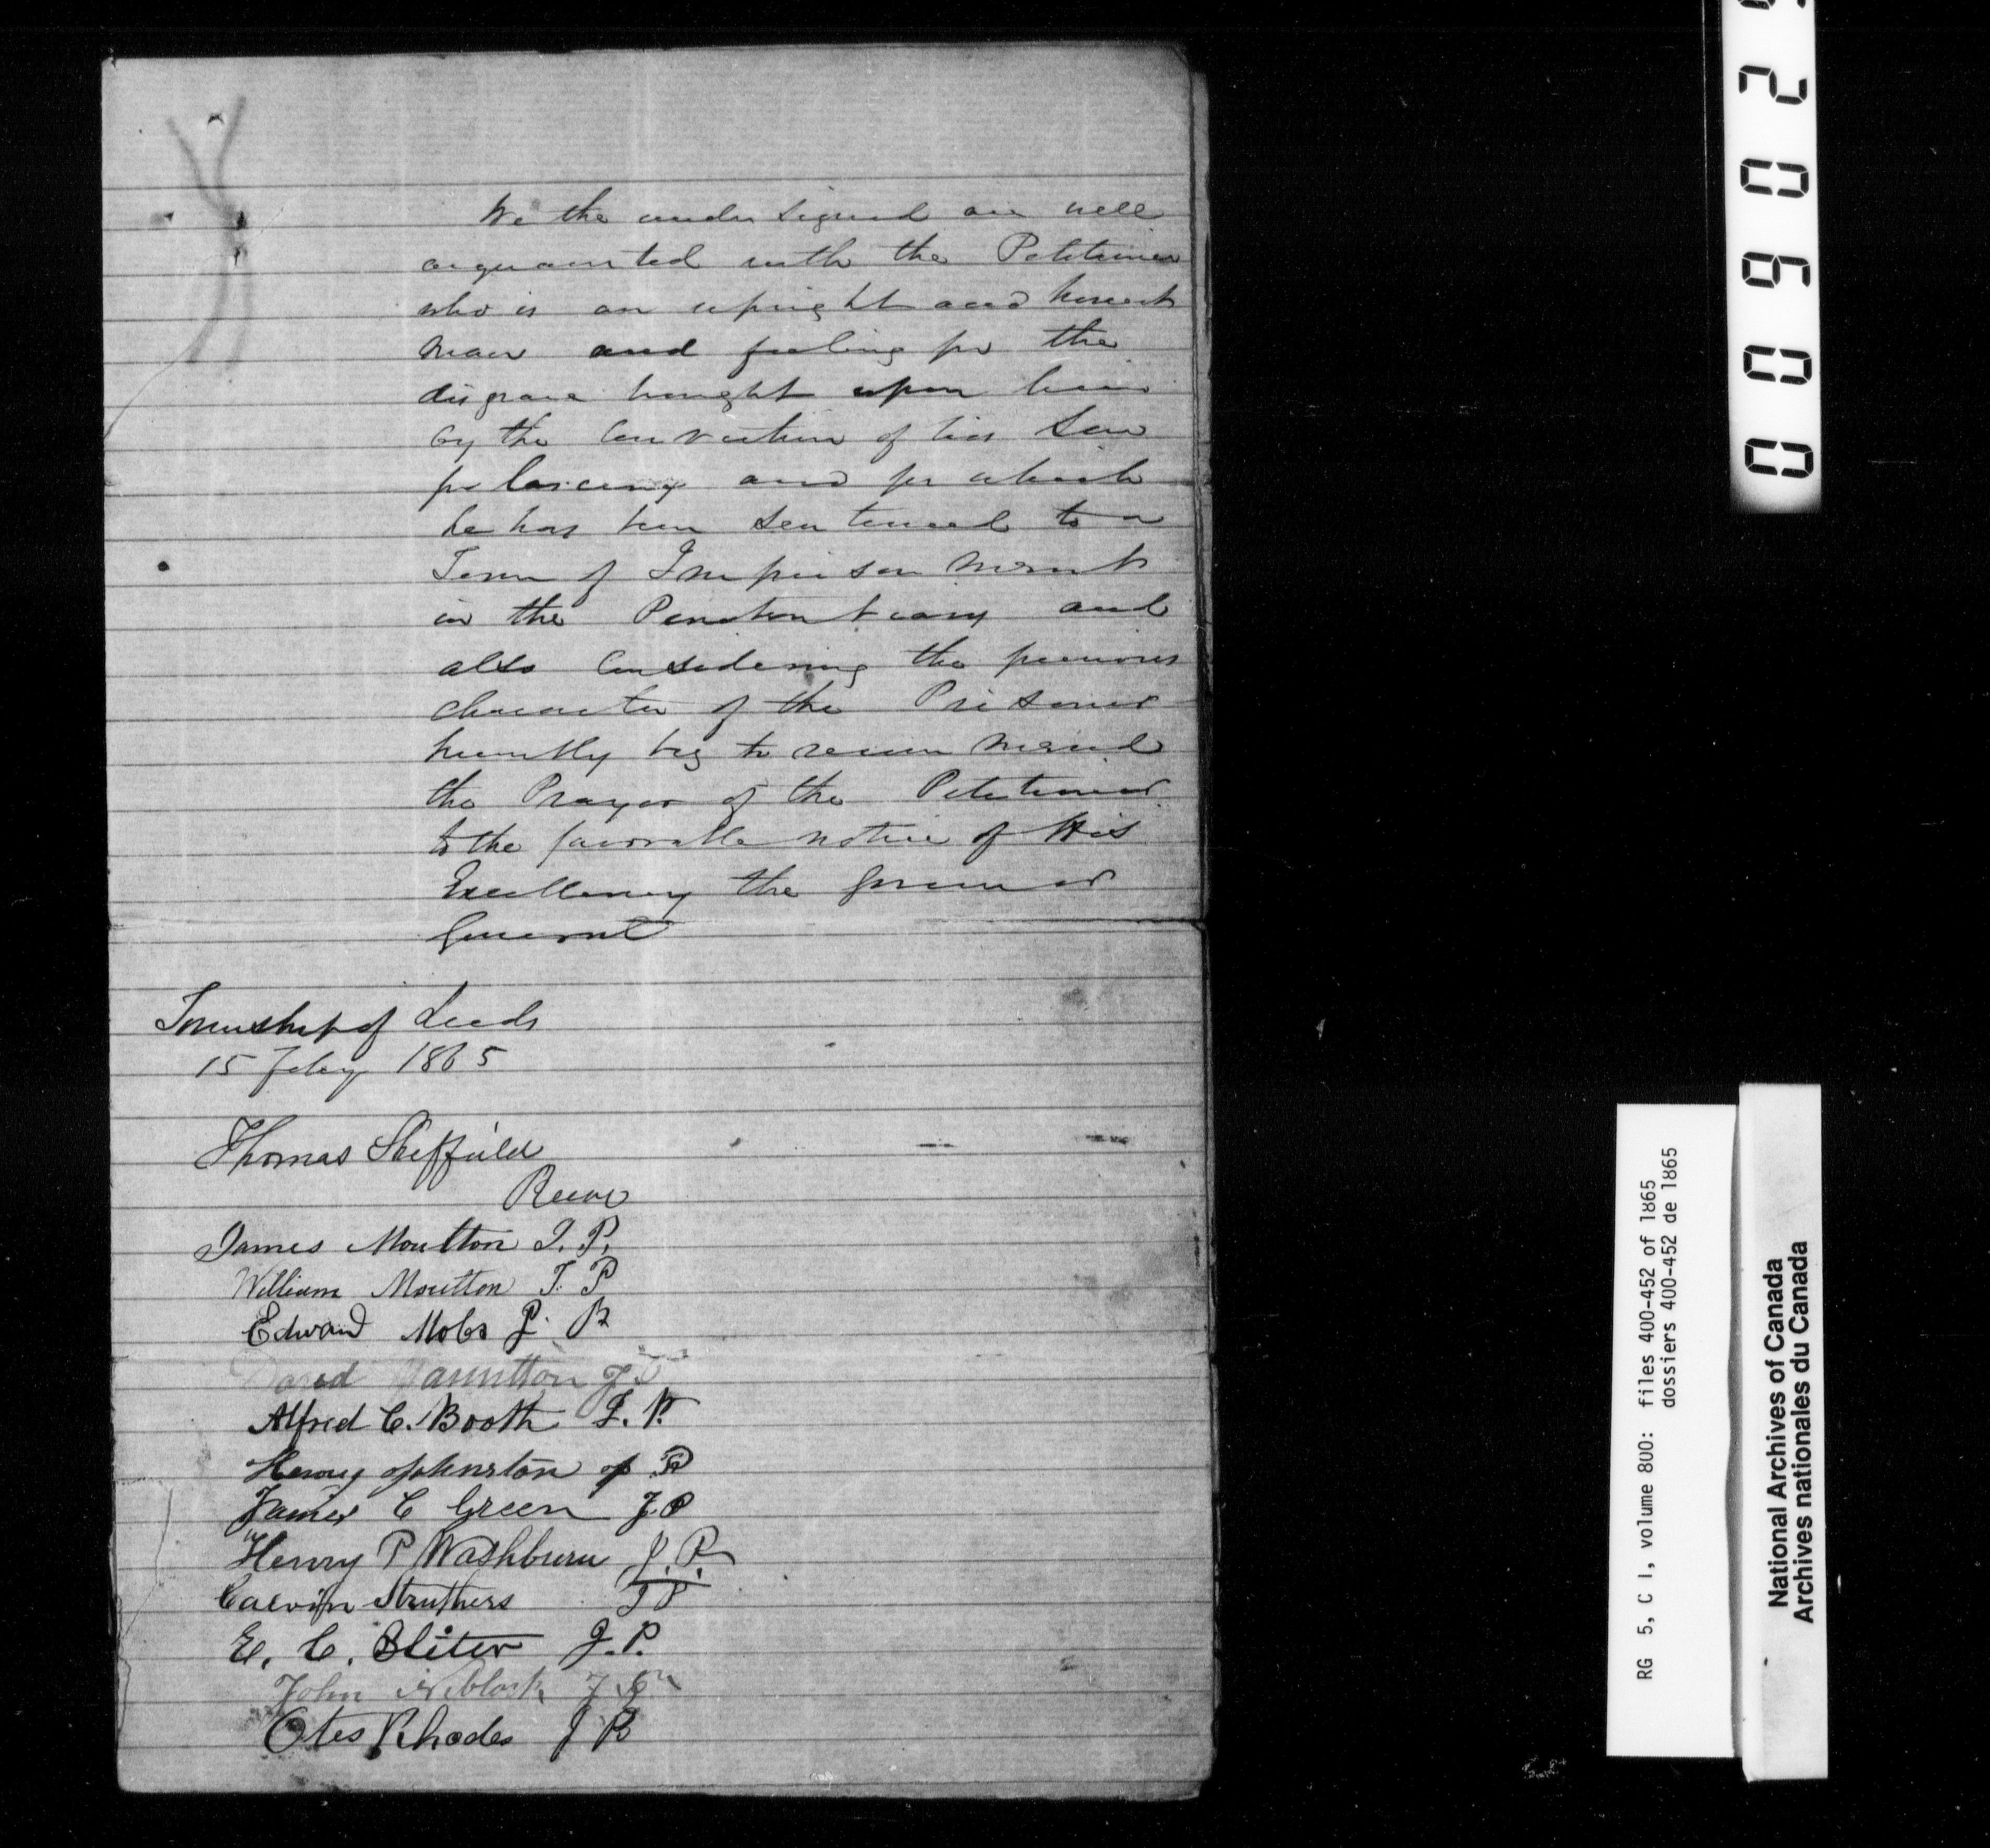 We the under signed are well
acquainted with the Petitioner
who is an upright and honest
man and feeling for the
disgrace brought upon him
by the Conviction of his Son
for larceny and for which
he has been sentenced to a
Term of Imprisonment
in the Penitentiary and
also Considering the previous
character of the Prisoner
humbly beg to recommend
the Prayer of the Petitioner
to the favorable notice of His
Excellency the Governor
General
Township of Leeds
15 Feby 1865
Thomas Sheffield
Reeve
James Moulton J. P.
William Moulton J. P
Edward Mobs J. P
David J.P
Alfred C. Booth J. P.
Henry Johnston J P
James C Green J.P
Henry P Washburn J. P.
Calvin Struthers J P
E. C. Sliter J. P.
John Niblock J. P.
Otes Rhodes J P
00902
RG 5, C 1, volume 800: files 400-452 of 1865
dossiers 400-452 de 1865
National Archives of Canada
Archives nationales du Canada